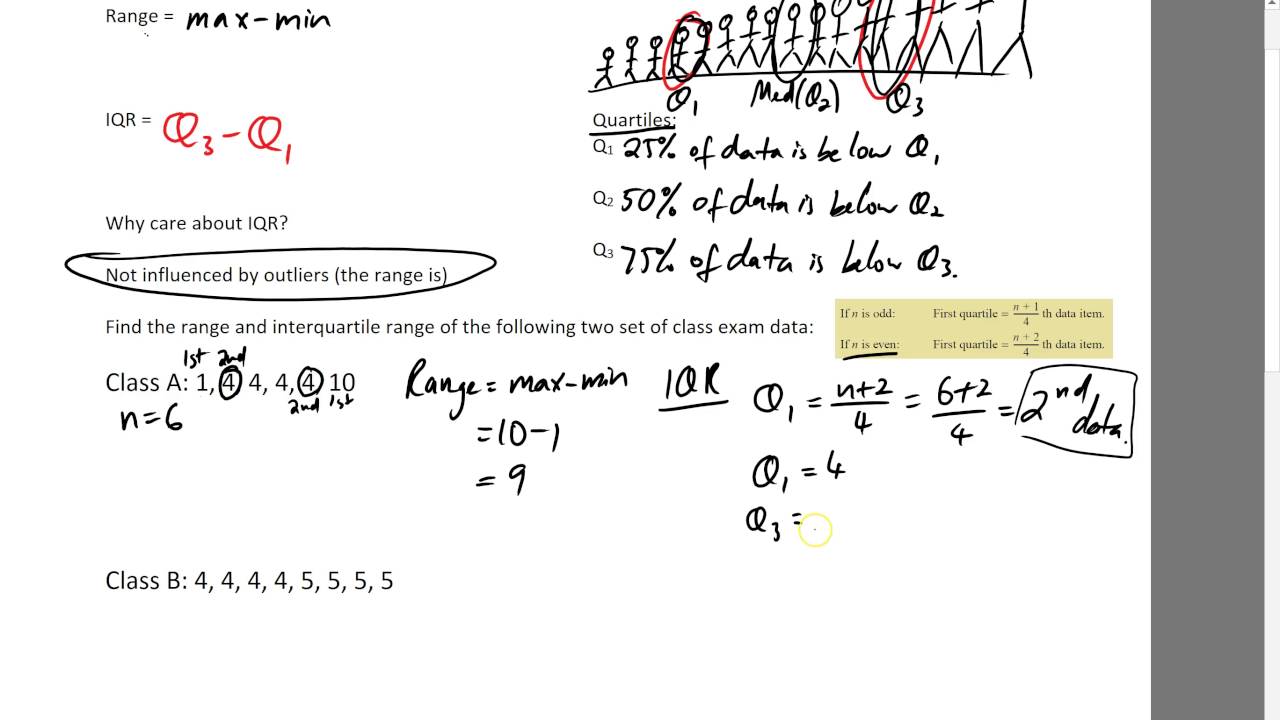 Range = max-min
IQR = Q3-Q1
Why care about IQR?
Not influenced by outliers (the range is)
Q1 Med(Q2) Q3
Quartiles:
Q1 25% of data is below Q1
Q2 50% of data is below Q2
Q3 75% of data is below Q3.
Find the range and interquartile range of the following two set of class exam data:
If n is odd: First quartile = n + 1 / 4 th data item.
If n is even: First quartile = n + 2 / 4 th data item.
1st 2nd
Class A: 1, 4, 4, 4, 4, 10
2nd 1st
n=6
Range = max-min
=10-1
= 9
IQR
Q1 = n+2 / 4 = 6+2 / 4 = 2nd data.
Q1 = 4
Q3 =
Class B: 4, 4, 4, 4, 5, 5, 5, 5